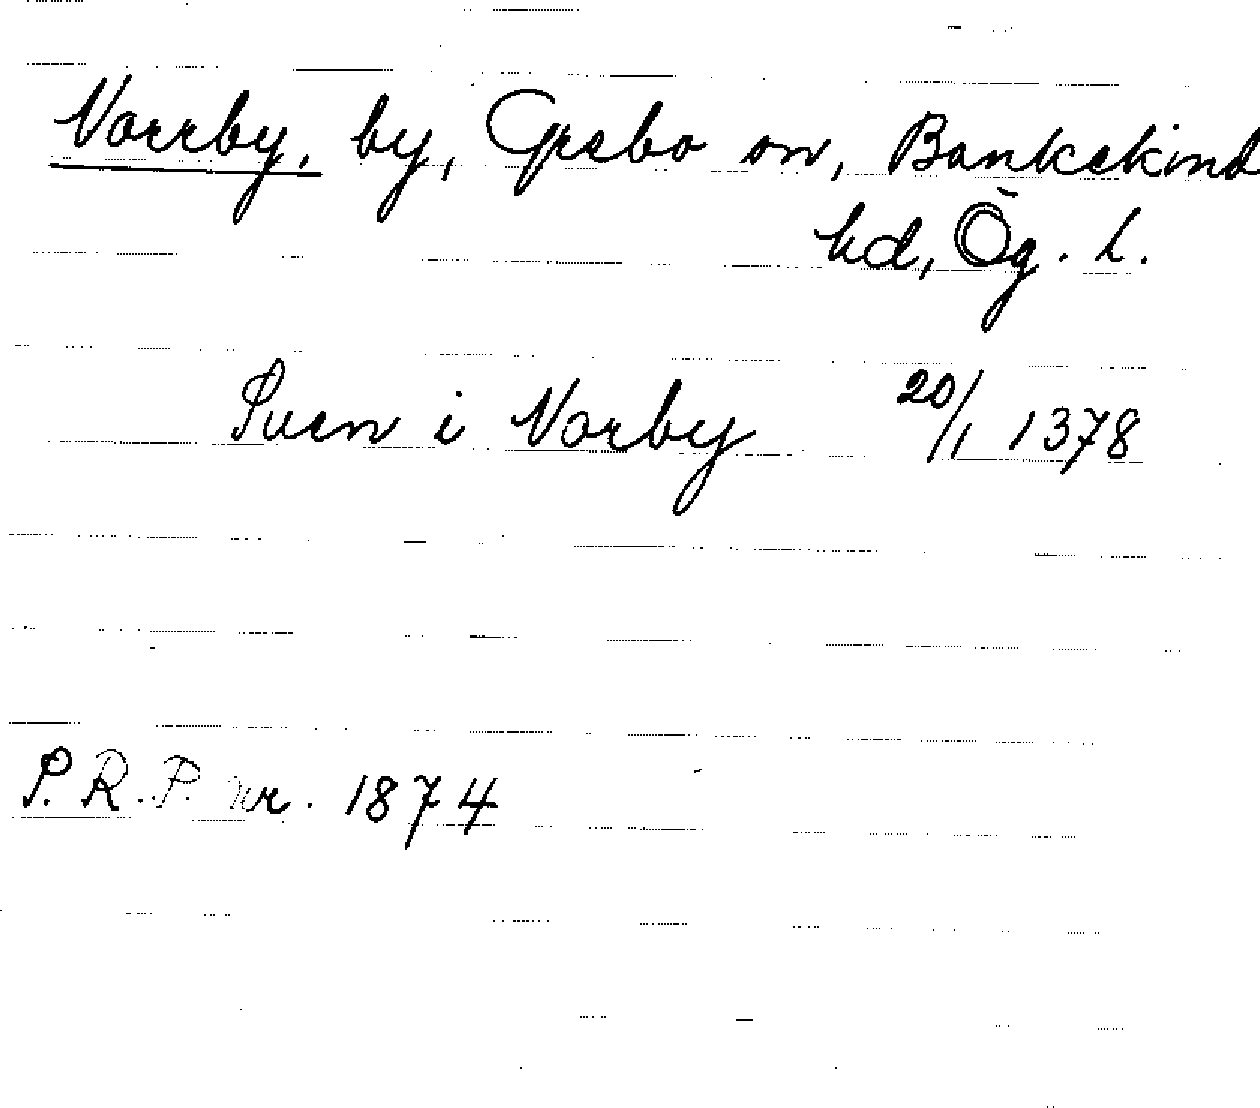 Norrby, by, Grebo sn, Bankekind
hd, Ög. l.
Suen i Norby 20/1 1378
P.R.P. nr. 1874